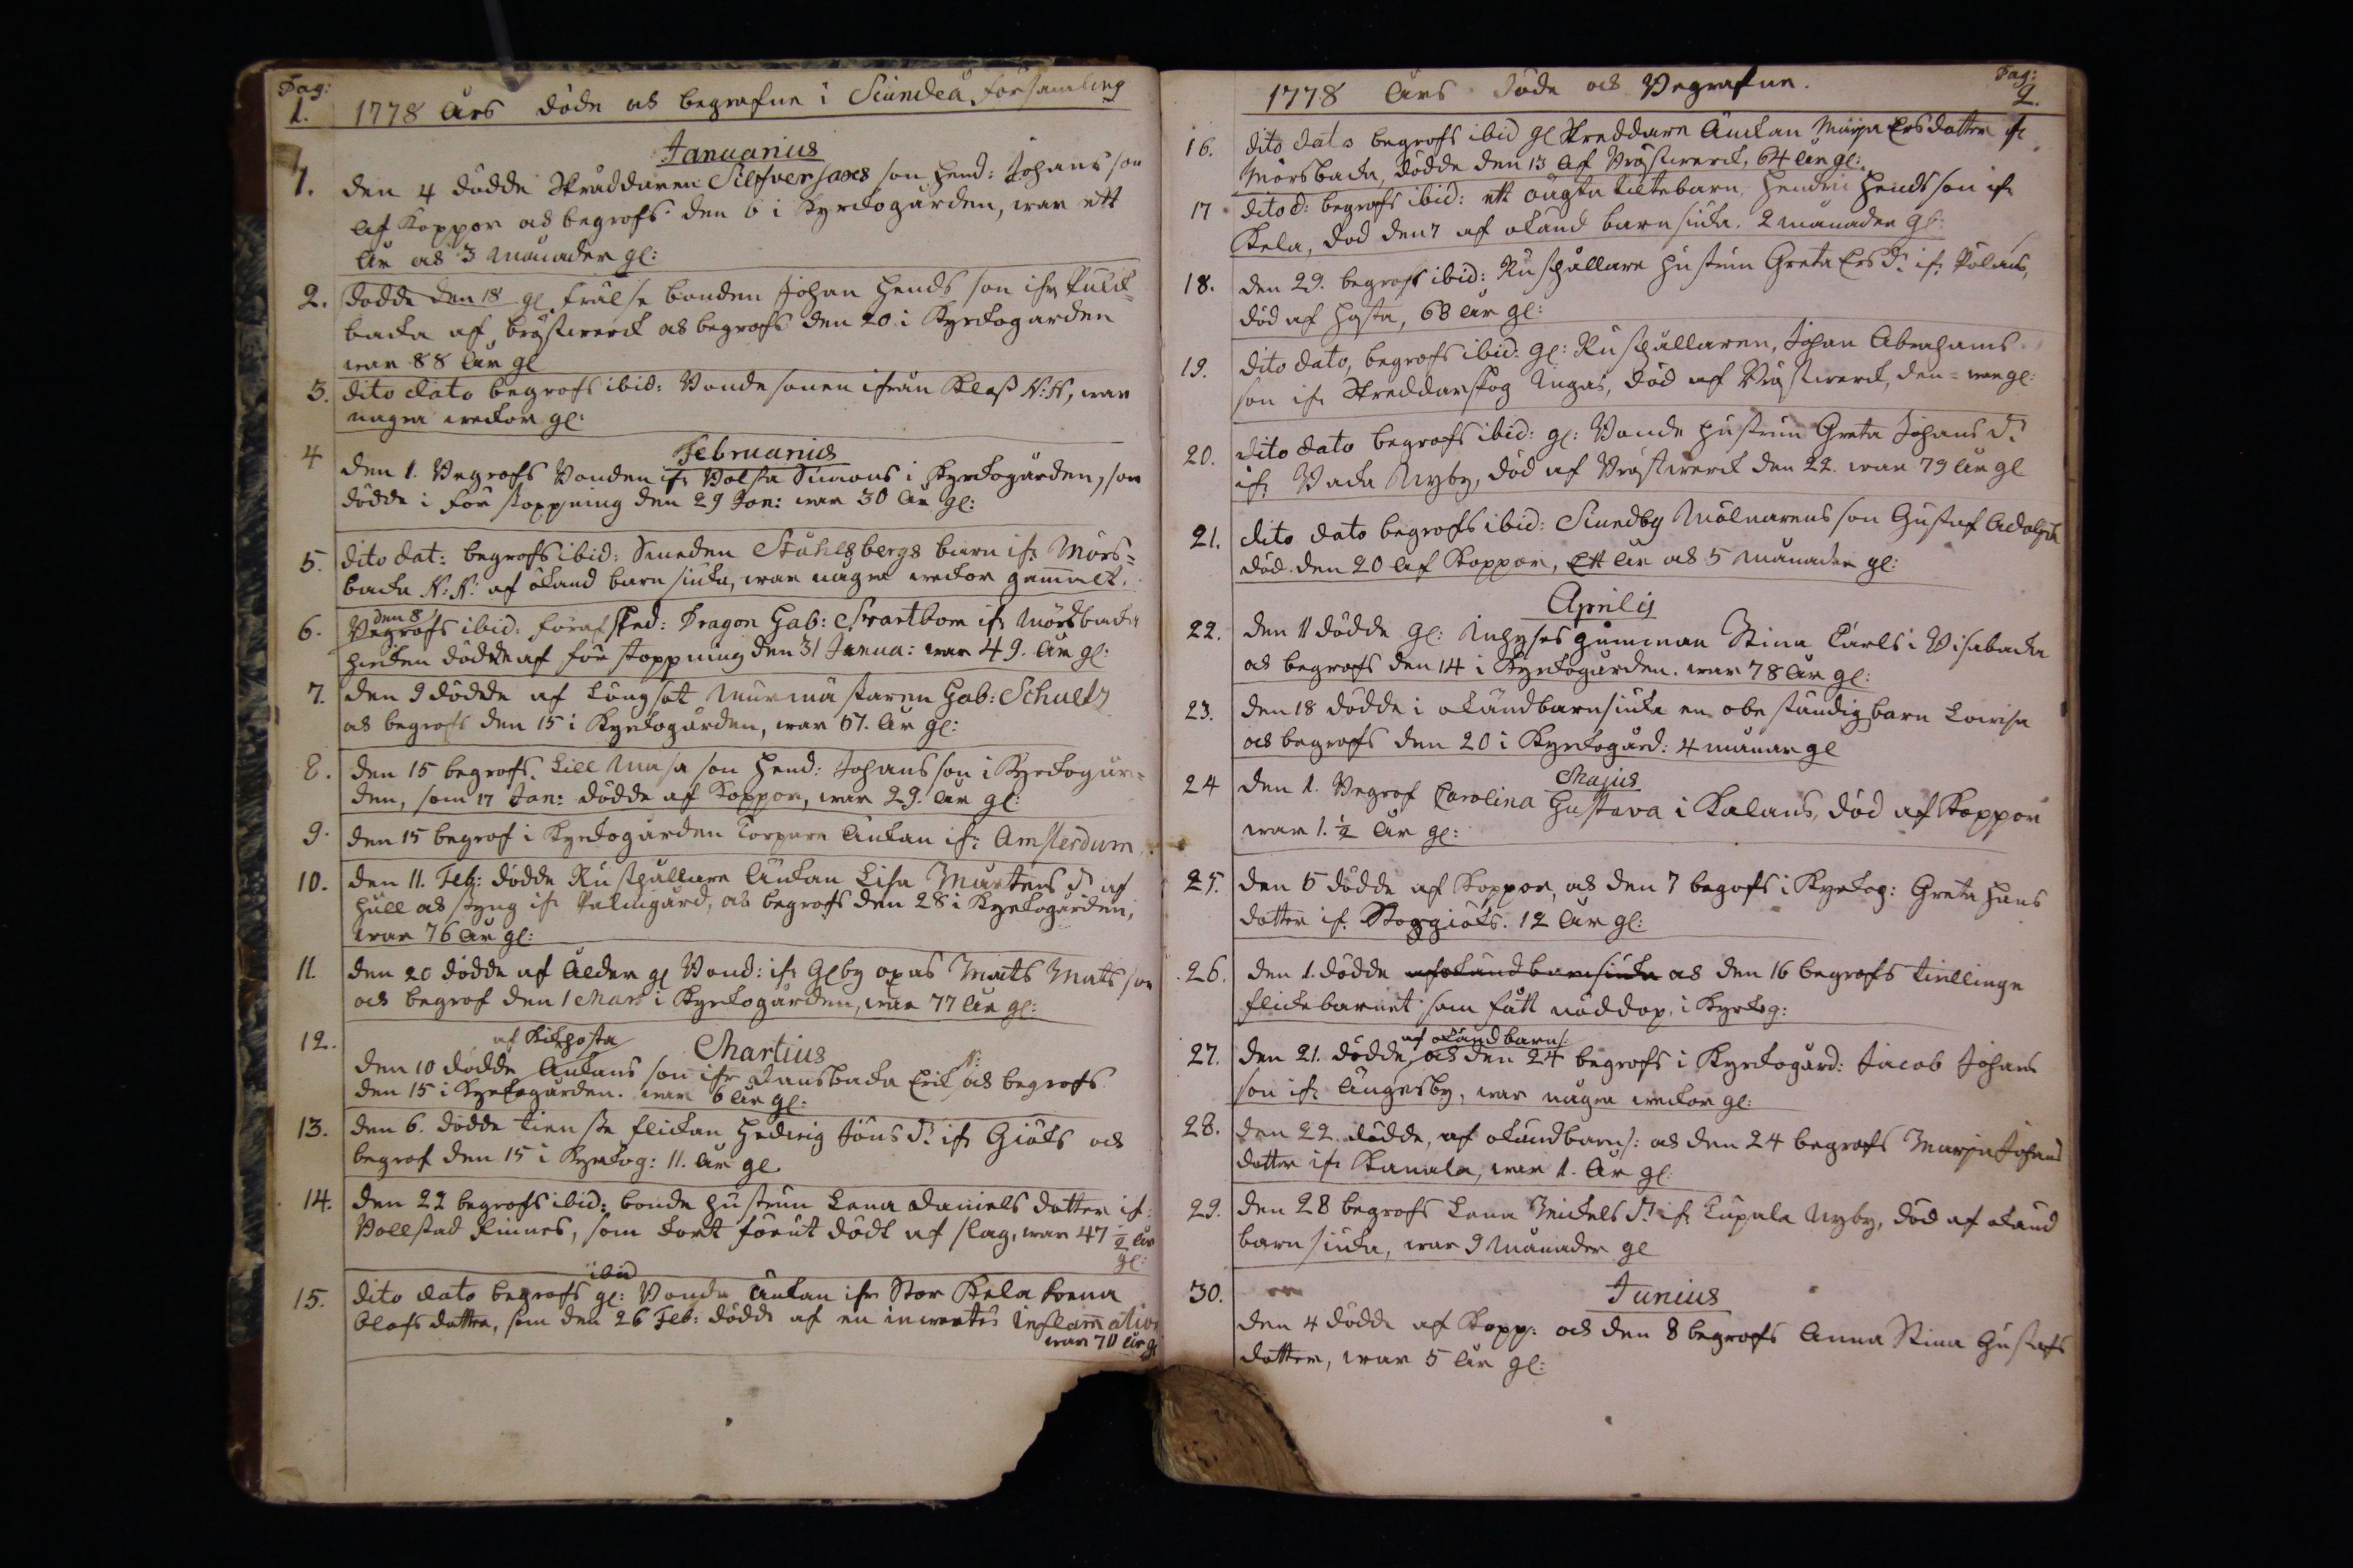 Pag:
1.
1778 Års döde och begrafne i Sciundeå församling
Januarius
1. den 4 dödde Skräddaren Silfversaxs son Hend: Johans son
af Koppor och begrofs den 6 i Kyrkogården, war ett
År och 3 Månader gl:
2. dödde den 18 gl Frälse bonden Johan Hends son ifr
backa af bröstwerck och begrofs den 20 i Kyrkogården
war 88 År gl
3. dito dato begrofs ibid: Bondesonen ifrån N:N, war
några weckor gl:
Februarius
4 den 1. Begrofs Bonden ifr Bölsta Simons i Kyrkogården, som
dödde i förstoppning den 29 Jan: war 30 År gl:
5. dito dat: begrofs ibid: Smeden Ståhlsbergs barn ifr Mörs-
backa N:N: af okänd barnsiuka, war någre weckor gammalt.
den 8
6. Begrofs ibid: förafsked: Dragon Gab: Svartbom ifr Mörsbacka
dödde af förstoppning den 31 Janua: war 49. År gl:
7. den 9 dödde af Lungsot Murmästaren Gab: Schultz
och begrofs den 15 i Kyrkogården, war 67. År gl:
8. den 15 begrofs. Lill Masa son Hend: Johans son i Kyrkogår-
den, som 17 Jan: dödde af Koppor, war 29. År gl:
9. den 15 begrof i Kyrkogården Torpare Änkan ifr Amsterdam.
10. den 11. Feb: dödde Rusthållare Änkan Lisa Mårtens dr af
håll och styng ifr Palmgård, och begrofs den 28 i Kyrkogården,
war 76 År gl:
11. den 20 dödde af Ålder gl Bond: ifr Opas Matts Mats son
och begrof den 1 Mars i Kyrkogården, war 77 År gl:
Martius
af Kikhosta
12. den 10 dödde Änkans son ifr Dansbacka Erik N: och begrofs
den 15 i Kyrkogården. war 6 År gl:
13. den 6. dödde tienste flickan Hedwig Jöns dr ifr Giöks och
begrof den 15 i Kyrkog: 11. År gl.
14. den 22 begrofs ibid: bonde hustrun Lena Daniels dotter ifr:
Bollstad Finnes, som kort förut dödt af slag, war 47 ½ År
gl:
ibid
15. dito dato begrofs gl: Bonde Änkan ifr Stor Kela
Olofs dotter, som den 26 Feb: dödde af en inwertes Inflamation
war 70 År gl
Pag:
2.
1778 Års Döde och Begrafne.
16. dito dato begrofs ibid gl Skreddare Änckan Maija Ersdotter ifr
Mörsbacka, dödde den 13 af Bröstwerck, 64 År gl:
17 dito d: begrofs ibid: ett oägta barn, Hendric Hendsson ifr
Kela, död den 7 af okänd barnsiuka. 2 månader gl:
18. den 29. begrofs ibid: Rusthållare hustrun Greta Ers dr ifr Pölans,
död af hosta, 68 År gl:
19. dito dato, begrofs ibid: gl: Rusthållaren, Johan Abrahams
son ifr Skreddarskog Ingas, död af Bröstwerck, den = war gl:
20. dito dato begrofs ibid: gl: Bonde hustrun Greta Johans dr
ifr Backa Nyby, död af Bröstwerck den 22. war 79 År gl
21. dito dato begrofs ibid: Siundby Mölnarens son Gustaf Adolph
död den 20 af Koppor, Ett År och 5 Månader gl:
Aprilis
22. den 11 dödde gl: Inhyses gumman Stina Carls i Wisabacka
och begrofs den 14 i Kyrkogården. war 78 År gl:
23. den 18 dödde i okändbarnsiuka en obeständig barn Lowisa
och begrofs den 20 i Kyrkogård: 4 månar gl
Majus
24 den 1. Begrof Carolina Gustava i Kalans, död af Koppor
war 1. ½ År gl:
25. den 5 dödde af Koppor, och den 7 begrofs i Kyrkog: Greta Hans
dotter ifr. Stoggiöks. 12 År gl:
26. den 1. dödde af okänd barnsiuka och den 16 begrofs twillinge
flickebarnet som fått nöddop, i Kyrkog:
af okänd barns:
27. den 21. dödde, och den 24 begrofs i Kyrkogård: Jacob Johans
son ifr Ängesby, war någre weckor gl:
28. den 22. dödde, af okändbarns: och den 24 begrofs Marja Johans
dotter ifr Kanala, war 1. År gl:
29. den 28 begrofs Lena Mickels dr ifr Lupala Nyby, död af okänd
barnsiuka, war 9 Månader gl
Junius
30. den 4 dödde af Kopp: och den 8 begrofs Anna Stina Gustafs
dotter, war 5 År gl: